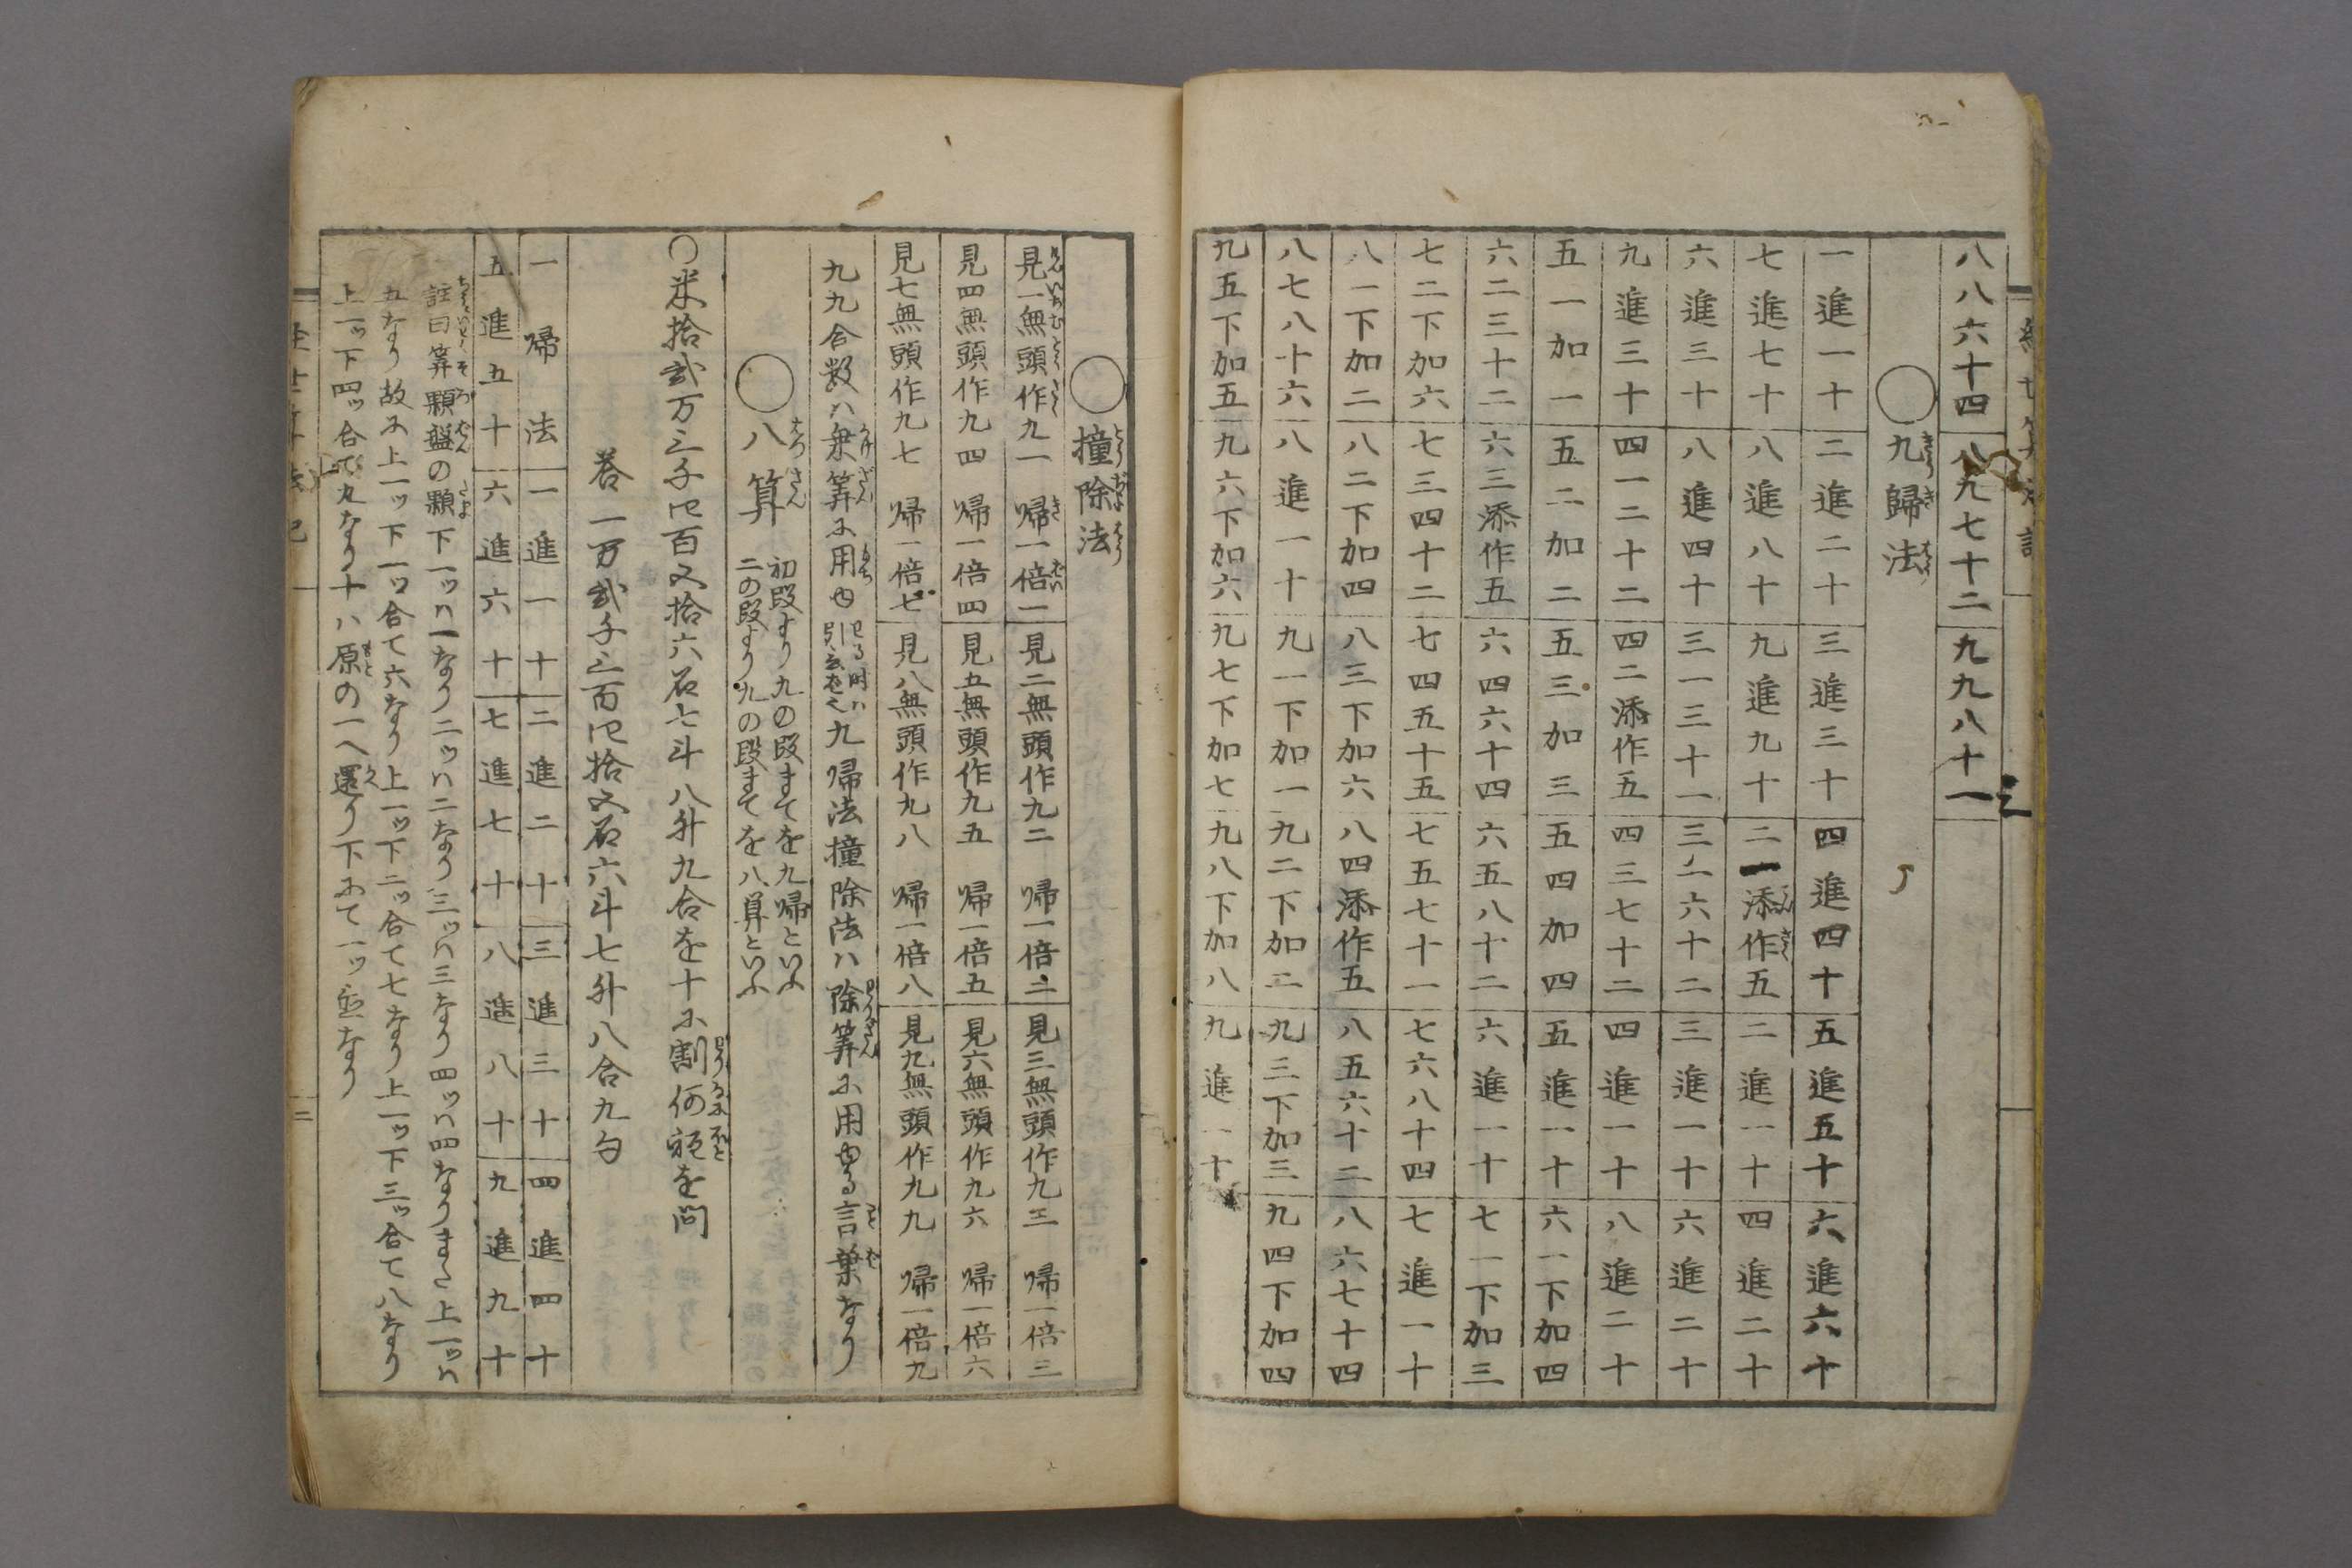 八八六十四 八九七十二 九九八十一
○九歸法
一進一十 二進二十 三進三十 四進四十 五進五十 六進六十
七進七十 八進八十 九進九十 二一添作五 二進一十 四進二十
六進三十 八進四十 三一三十一 三二六十二 三進一十 六進二十
九進三十 四一二十二 四二添作五 四三七十二 四進一十 八進二十
五一加一 五二加二 五三加三 五四加四 五進一十 六一下加四
六二三十二 六三添作五 六四六十四 六五八十二 六進一十 七一下加三
七二下加六 七三四十二 七四五十五 七五七十一 七六八十四 七進一十
八一下加二 八二下加四 八三下加六 八四添作五 八五六十二 八六七十四
八七八十六 八進一十 九一下加一 九二下加二 九三下加三 九四下加四
九五下加五 九六下加六 九七下加七 九八下加八 九進一十
○撞除法
見一無頭作九一 帰一倍一 見二無頭作九二 帰一倍二 見三無頭作九三 帰一倍三
見四無頭作九四 帰一倍四 見五無頭作九五 帰一倍五 見六無頭作九六 帰一倍六
見七無頭作九七 帰一倍七 見八無頭作九八 帰一倍八 見九無頭作九九 帰一倍九
九九合数ハ乗筭に用ゆ 九帰法撞除法ハ除筭に用ゆる言葉なり
○八算 初段より九の段まてを九帰といふ
二の段より九の段まてを八算といふ
○米拾弐万三千四百五拾六石七斗八升九合を十に割何程を問
答一万弐千三百四拾五石六斗七升八合九勺
一帰法 一進一十 二進二十 三進三十 四進四十
五進五十 六進六十 七進七十 八進八十 九進九十
註曰筭顆盤の顆下一ッハ一なり二ッハ二なり三ッハ三なり四ッハ四なりまた上一ッハ
五なり故に上一ッ下一ッ合て六なり上一ッ下二ッ合て七なり上一ッ下三ッ合て八なり
上一ッ下四ッ合て九なり十ハ原の一へ還り下にて一ッなり